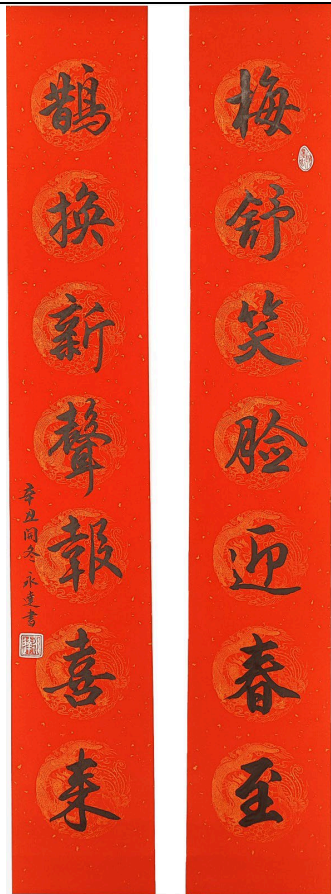 梅舒笑脸迎春至
鹊换新聲報喜来
辛丑间冬永达書